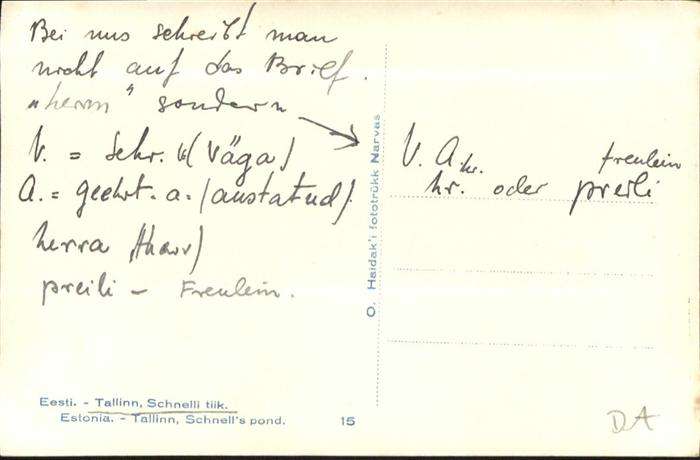 Bei uns schreibt man
nicht auf das Brief.
"herrn" sondern
V. = sehr. (Väga)
A. = geehrt. a. (austatud).
herra
preili - Freulein.
V. A. hr. freulein
hr. oder preili
O. Haidak'i fototrükk Narvas
Eesti. - Tallinn, Schnelli tiik.
Estonia. - Tallinn, Schnell's pond. 15
DA